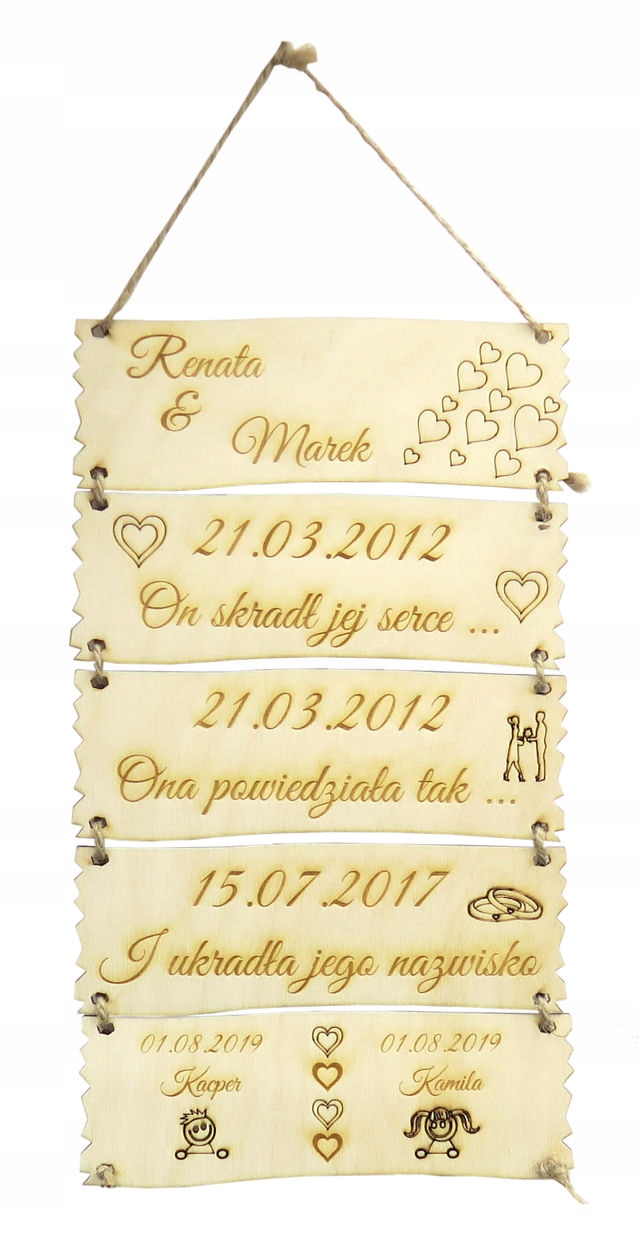 Renata
&
Marek
21.03.2012
On skradł jej serce ...
21.03.2012
Ona powiedziała tak ...
15.07.2017
I ukradła jego nazwisko
01.08.2019 01.08.2019
Kacper Kamila